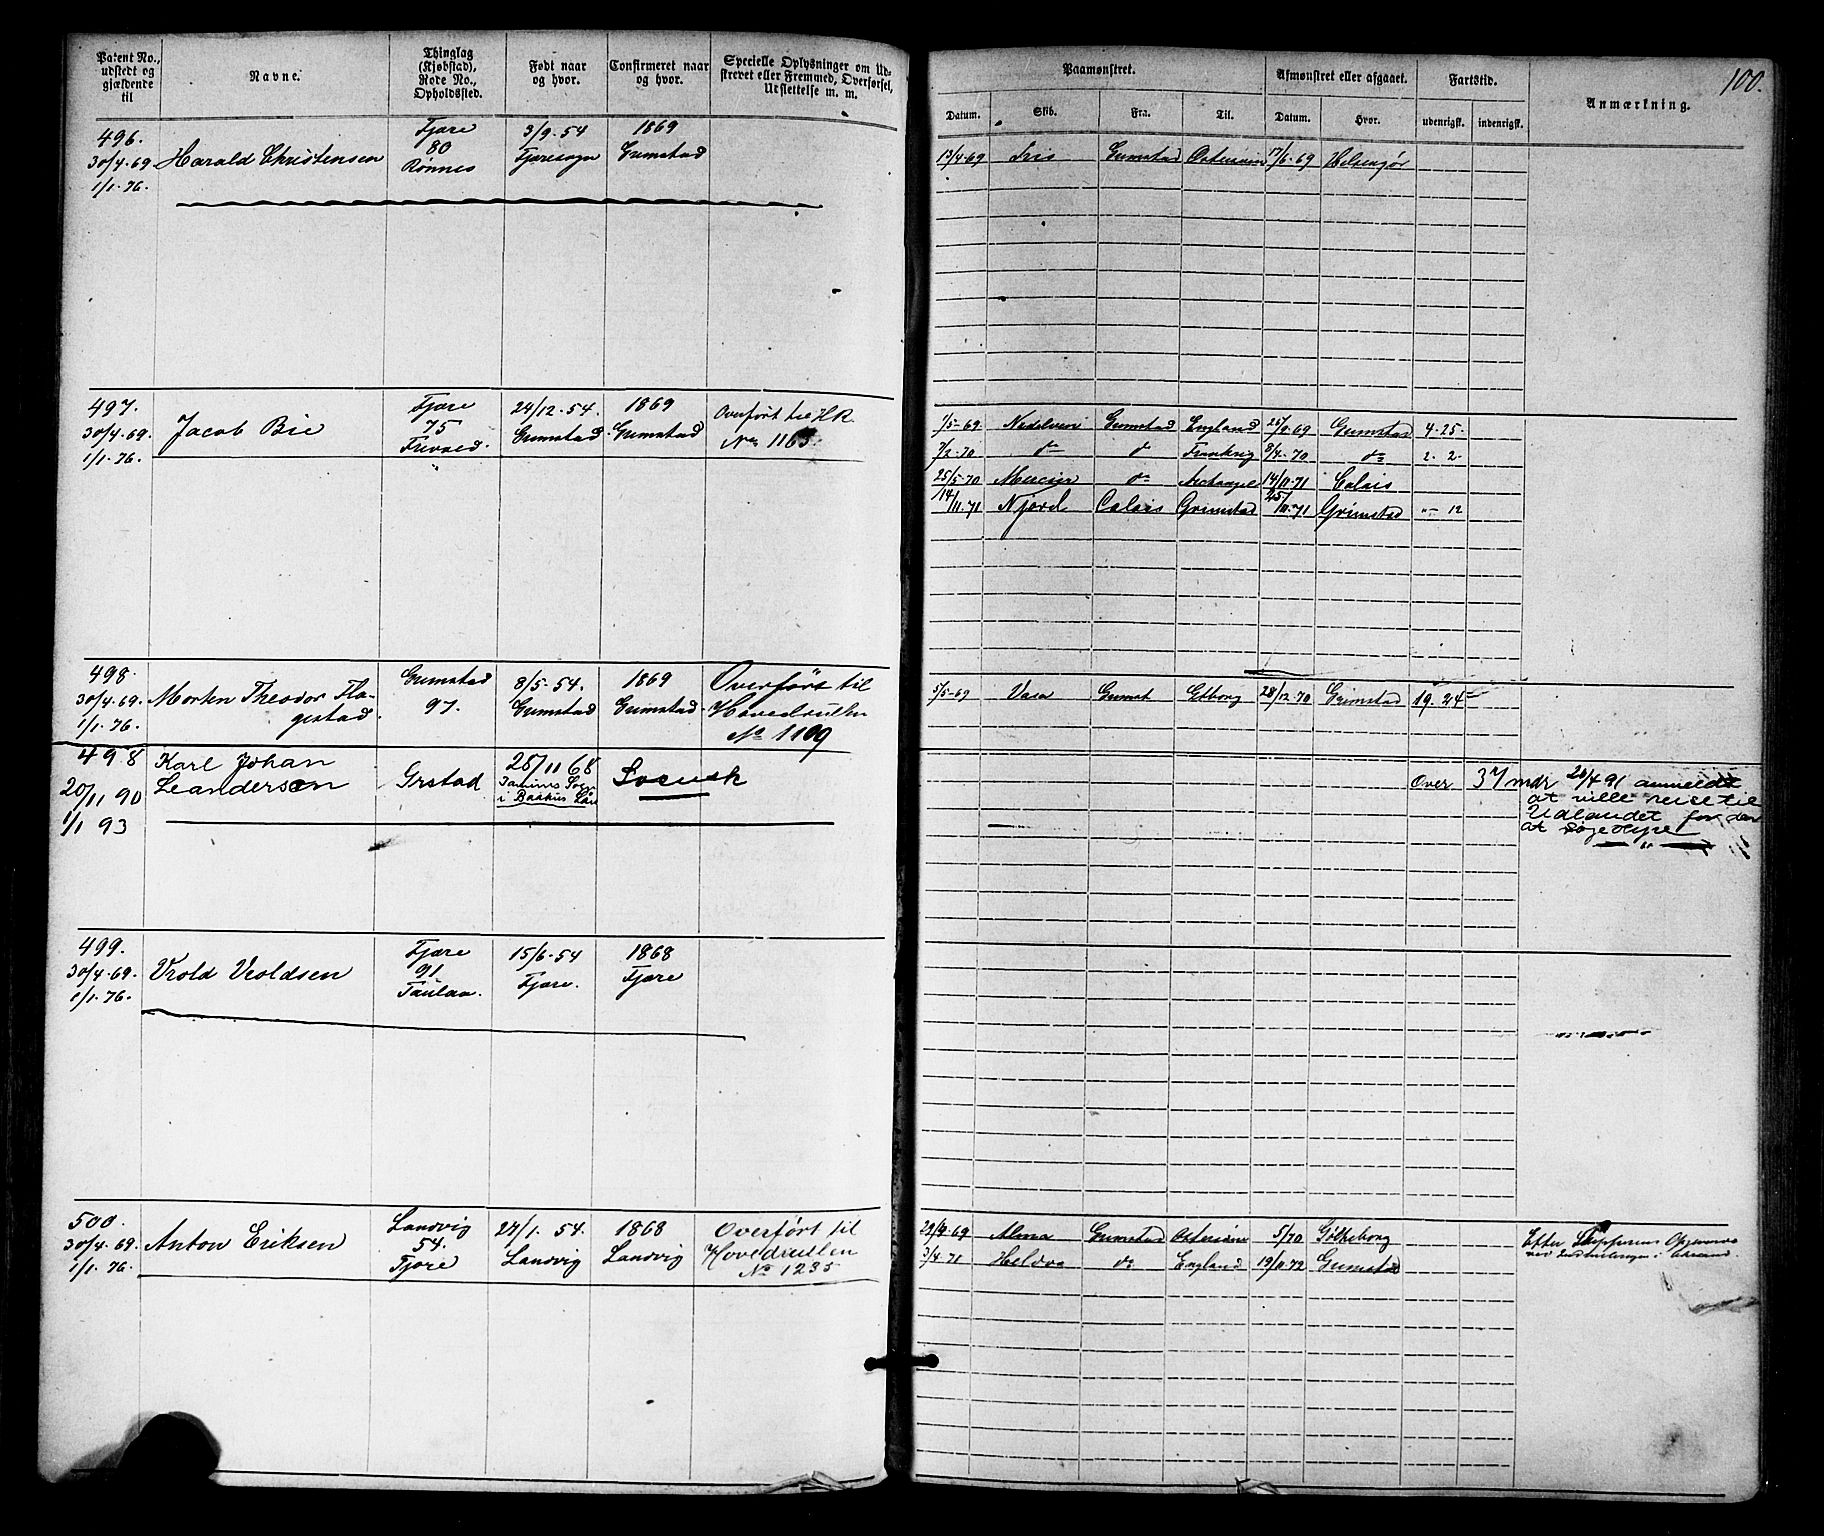 100.
Patent No., udstedt og gjældende til
Navne.
Thinglag (Kjøbstad), Rode No., Opholdssted.
Født naar og hvor.
Confirmeret naar og hvor.
Specielle Oplysninger om Udstrevet eller Fremmed, Overførsel, Udslettelse m. m.
Paamønstret.
Afmønstret eller afgaaet.
Fartstid.
Anmærkning.
Datum.
Skib.
Fra.
Til.
Datum.
Hvor.
udenrigsk.
indenrigsk.
496.
30/4-69
1/1-76.
Harald Christensen
Fjære
80
Rønnes
3/9-54
Fjæresogn
1869
Grimstad
13/4-69 Iris Grimstad Østersøen 17/6-69 Helsengør
497.
30/4-69.
1/1-76.
Jacob Bie
Fjære
75
Frivold.
24/12-54.
Grimstad
1869
Grimstad
Overført til H.R.
No 1163
1/5-69 Grimstad England Grimstad 4-25-
7/2-70 do d Frankrig 9/4-70 do 2-2-
25/5-70 Mercur do Archangel 14/11-71 Calais
14/11-71 Njord Calais Grimstad 25/11-71 Grimstad "- 12
498.
30/4-69.
1/1-76.
Morten Theodor Flagestad
Grimstad
97.
8/5-54.
Grimstad
1869
Grimstad.
Overført til
Hovedrullen
No 1109
5/5-69 Vasa Grimst Gtborg 28/12-70 Grimstad 19.24
498
20/11 90
1/1 93
Karl Johan
Leandersen
Grstad
28/11 68
Svensk
Over 37 mdr
28/4 91 anmeldt
at ville reise til
Udlandet for der
at søge Hyre
499.
30/4-69.
1/1-76.
Vrold Vroldsen
Fjære
91
Taulaa.
15/6-54
Fjære.
1868
Fjære
500.
30/4-69.
1/1-76.
Anton Eriksen
Landvig
54.
Fjære
27/1-54.
Landvig
1868
Landvig
Overført til
Hovedrullen
No 1235
29/4-69 Alma Grimstad Østersøen 5/70 Gøtheborg
3/4-71 Heldva do England 19/11-72 Grimstad
Efter Skipperens Opgivende